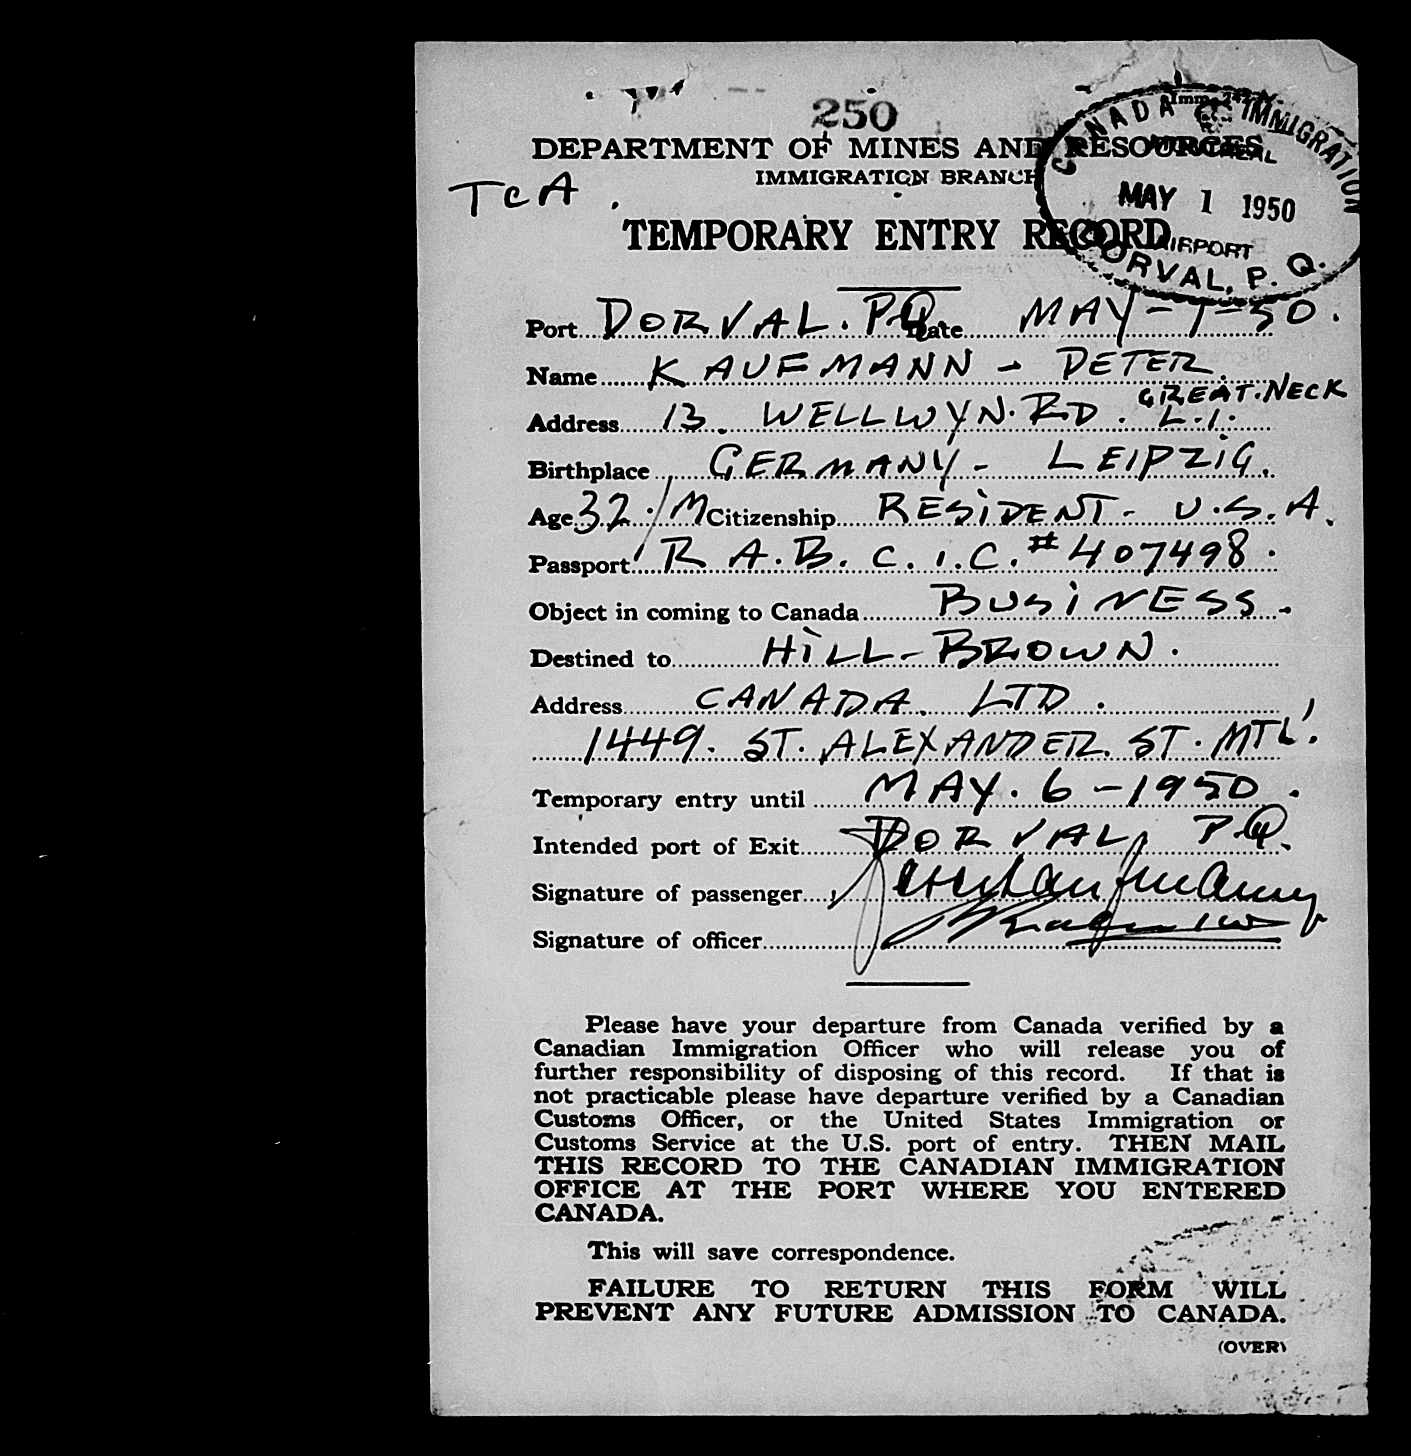 250
Imm. 247
CANADA IMMIGRATION
MONTREAL
MAY 1 1950
AIRPORT
DORVAL, P. Q.
DEPARTMENT OF MINES AND RESOURCES
IMMIGRATION BRANCH
TCA.
TEMPORARY ENTRY RECORD
Port DORVAL. P.Q. Date MAY-1-50.
Name KAUFMANN - PETER.
Address 13. WELLWYN. RD. GREAT. NECK L.I.
Birthplace GERMANY - LEIPZIG.
Age 32. / M Citizenship RESIDENT- U.S.A.
Passport R.A.B.C.I.C. # 407498.
Object in coming to Canada BUSINESS.
Destined to HILL-BROWN.
Address CANADA. LTD.
1449. ST. ALEXANDER. ST. MTL!
Temporary entry until MAY. 6-1950.
Intended port of Exit DORVAL, P.Q.
Signature of passenger Peter Kaufmann
Signature of officer
Please have your departure from Canada verified by a
Canadian Immigration Officer who will release you of
further responsibility of disposing of this record. If that is
not practicable please have departure verified by a Canadian
Customs Officer, or the United States Immigration or
Customs Service at the U.S. port of entry. THEN MAIL
THIS RECORD TO THE CANADIAN IMMIGRATION
OFFICE AT THE PORT WHERE YOU ENTERED
CANADA.
This will save correspondence.
FAILURE TO RETURN THIS FORM WILL
PREVENT ANY FUTURE ADMISSION TO CANADA.
(OVER)